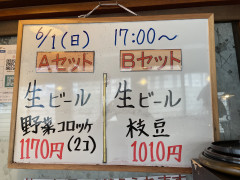 6/1(日) 17:00～
Aセット
生ビール
野菜コロッケ
(2コ)
1170円
Bセット
生ビール
枝豆
1010円